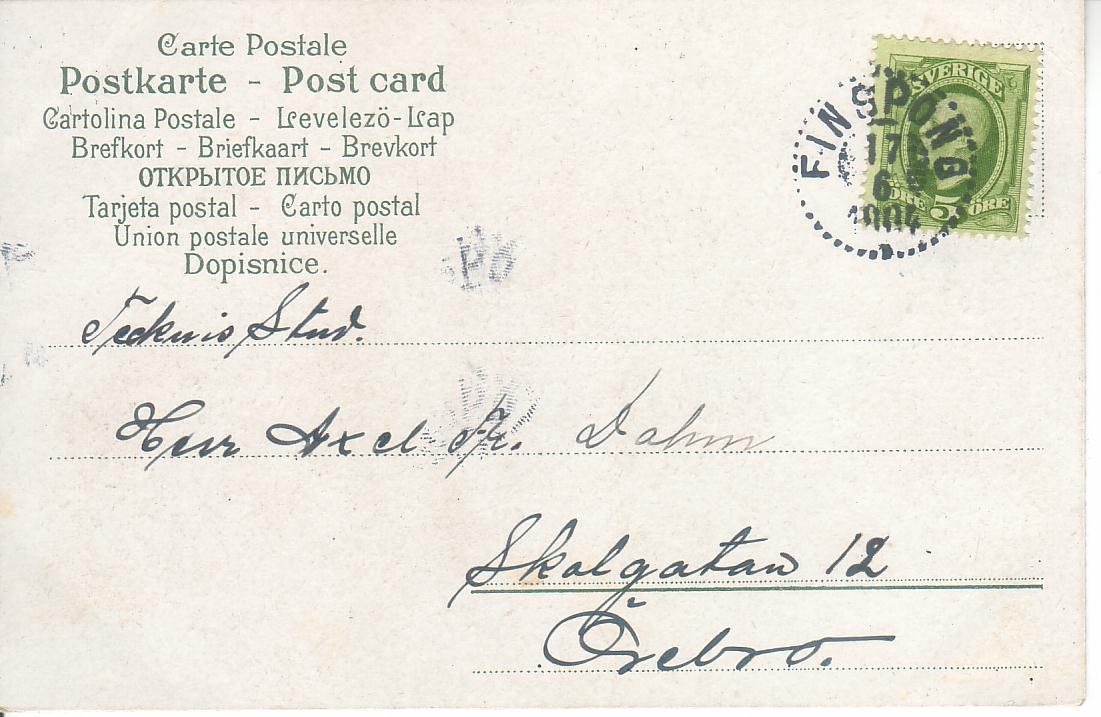 Carte Postale
Postkarte - Post card
Cartolina Postale - Levelezö-Lap
Brefkort - Briefkaart - Brevkort
ОТКРЫТОЕ ПИСЬМО
Tarjeta postal - Carto postal
Union postale universelle
Dopisnice.
SVERIGE
ÖRE 5 ÖRE
FINSPONG
17
6
1904
Teknis Stud.
Herr Axel Fr. Dahm
Skolgatan 12
Örebro.